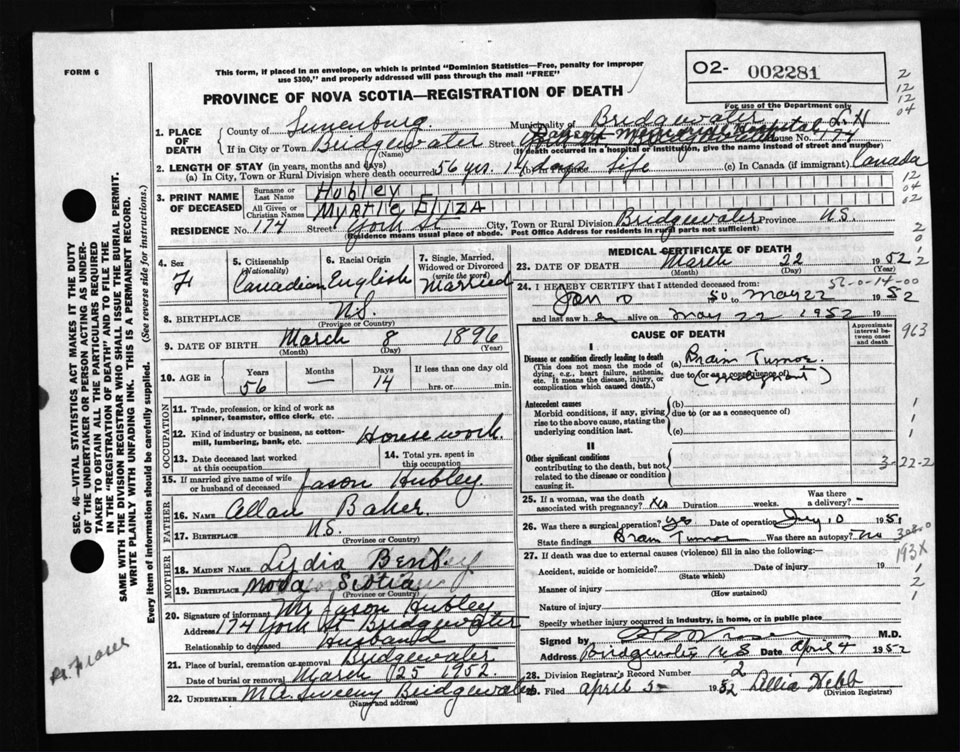 FORM 6
This form, if placed in an envelope, on which is printed "Dominion Statistics—Free, penalty for improper
use $300," and properly addressed will pass through the mail "FREE"
PROVINCE OF NOVA SCOTIA—REGISTRATION OF DEATH
O2- 002281
For use of the Department only
2
12
12
04
1. PLACE OF DEATH
County of Lunenburg Municipality of Bridgewater
Memorial Hospital
If in City or Town Bridgewater Street House No. 174
(Name) (If death occurred in a hospital or institution, give the name instead of street and number)
2. LENGTH OF STAY (in years, months and days)
(a) In City, Town or Rural Division where death occurred 56 yrs. 14 days (b) In Province life (c) In Canada (if immigrant) Canada
3. PRINT NAME OF DECEASED
Surname or Last Name Hubley
All Given or Christian Names Myrtle Eliza
12
04
02
RESIDENCE No. 174 Street York St City, Town or Rural Division Bridgewater Province N.S.
(Residence means usual place of abode. Post Office Address for residents in rural parts not sufficient)
SEC. 46—VITAL STATISTICS ACT MAKES IT THE DUTY
OF THE UNDERTAKER OR PERSON ACTING AS UNDER-
TAKER TO OBTAIN ALL THE PARTICULARS REQUIRED
IN THE "REGISTRATION OF DEATH" AND TO FILE THE
SAME WITH THE DIVISION REGISTRAR WHO SHALL ISSUE THE BURIAL PERMIT.
WRITE PLAINLY WITH UNFADING INK. THIS IS A PERMANENT RECORD.
Every item of information should be carefully supplied. (See reverse side for instructions.)
4. Sex F
5. Citizenship (Nationality) Canadian
6. Racial Origin English
7. Single, Married, Widowed or Divorced (write the word) Married
8. BIRTHPLACE N.S.
(Province or Country)
9. DATE OF BIRTH March 8 1896
(Month) (Day) (Year)
10. AGE in Years 56 Months — Days 14 If less than one day
hrs. or min.
OCCUPATION
11. Trade, profession, or kind of work as
spinner, teamster, office clerk, etc.
12. Kind of industry or business, as cotton-
mill, lumbering, bank, etc. Housework
13. Date deceased last worked
at this occupation
14. Total yrs. spent in
this occupation
15. If married give name of wife
or husband of deceased Jason Hubley
FATHER
16. NAME Allan Baker
17. BIRTHPLACE N.S.
(Province or Country)
MOTHER
18. MAIDEN NAME Lydia
19. BIRTHPLACE Nova Scotia
(Province or Country)
20. Signature of informant Mr Jason Hubley
Address 174 York St Bridgewater
Relationship to deceased Husband
21. Place of burial, cremation or removal Bridgewater
Date of burial or removal March 25 1952
22. UNDERTAKER M.A. Sweeny Bridgewater
(Name and address)
Dr. Fraser
MEDICAL CERTIFICATE OF DEATH
23. DATE OF DEATH March 22 1952
(Month) (Day) (Year)
24. I HEREBY CERTIFY that I attended deceased from: 56-0-14-00
Jan 10 50 to May 22 1952
and last saw h er alive on May 22 1952 19
CAUSE OF DEATH
Approximate interval between onset and death
963
I
Disease or condition directly leading to death
(This does not mean the mode of
dying, e.g., heart failure, asthenia,
etc. It means the disease, injury, or
complication which caused death.)
(a) Brain Tumor.
due to (or as a consequence of)
Antecedent causes
Morbid conditions, if any, giving
rise to the above cause, stating the
underlying condition last.
(b)
due to (or as a consequence of)
(c)
1
1
1
II
Other significant conditions
contributing to the death, but not
related to the disease or condition
causing it.
3-22-2
25. If a woman, was the death
associated with pregnancy? No Duration weeks. Was there a delivery? -
26. Was there a surgical operation? yes Date of operation 10 1951
State findings Brain Tumor Was there an autopsy? No
27. If death was due to external causes (violence) fill in also the following:—
193X
Accident, suicide or homicide? Date of injury 19
(State which)
Manner of injury
(How sustained)
Nature of injury
1
2
1
Specify whether injury occurred in industry, in home, or in public place
Signed by M.D.
Address Bridgewater N.S Date April 4 1952
28. Division Registrar's Record Number 2
29. Filed April 5 1952 Webb
(Division Registrar)